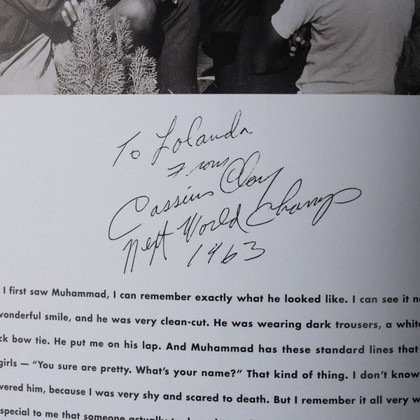 To Lolanda
From
Cassius Clay
Next World Champ
1963
I first saw Muhammad, I can remember exactly what he looked like. I can see it
wonderful smile, and he was very clean-cut. He was wearing dark trousers, a white
ck bow tie. He put me on his lap. And Muhammad has these standard lines that
girls — "You sure are pretty. What's your name?" That kind of thing. I don't know
vered him, because I was very shy and scared to death. But I remember it all very
special to me that someone actually